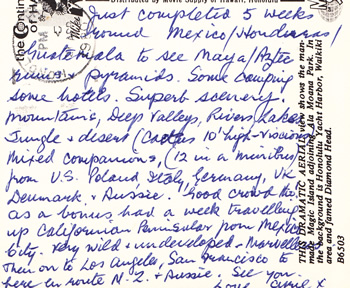 Distributed by Movie Supply of Hawaii, Honolulu
the Contin
of HA
PM
Just completed 5 weeks
round Mexico/Honduras/
Guatemala to see Maya/Aztec
ruins + pyramids. Some camping
some hotels. Superb scenery,
mountains, Deep Valleys, Rivers, Lakes
Jungle + desert (Cactus 10' high - viscious)
Mixed companions, (12 in a minibus)
from U.S. Poland Italy, Germany, UK
Denmark. + Aussie. Good crowd
as bonus, had a week travelling
up Californian Peninsular from Mexico
City. Very wild + undeveloped - Marvellous
Then on to Los Angeles, San Francisco to
here en route N.Z. + Aussie. See you.
Love x
THIS DRAMATIC AERIAL view shows the man-
made Magic Island adjoining Ala Moana Park. In
the background is Honolulu Yacht Harbor, Waikiki
area and famed Diamond Head.
B6503